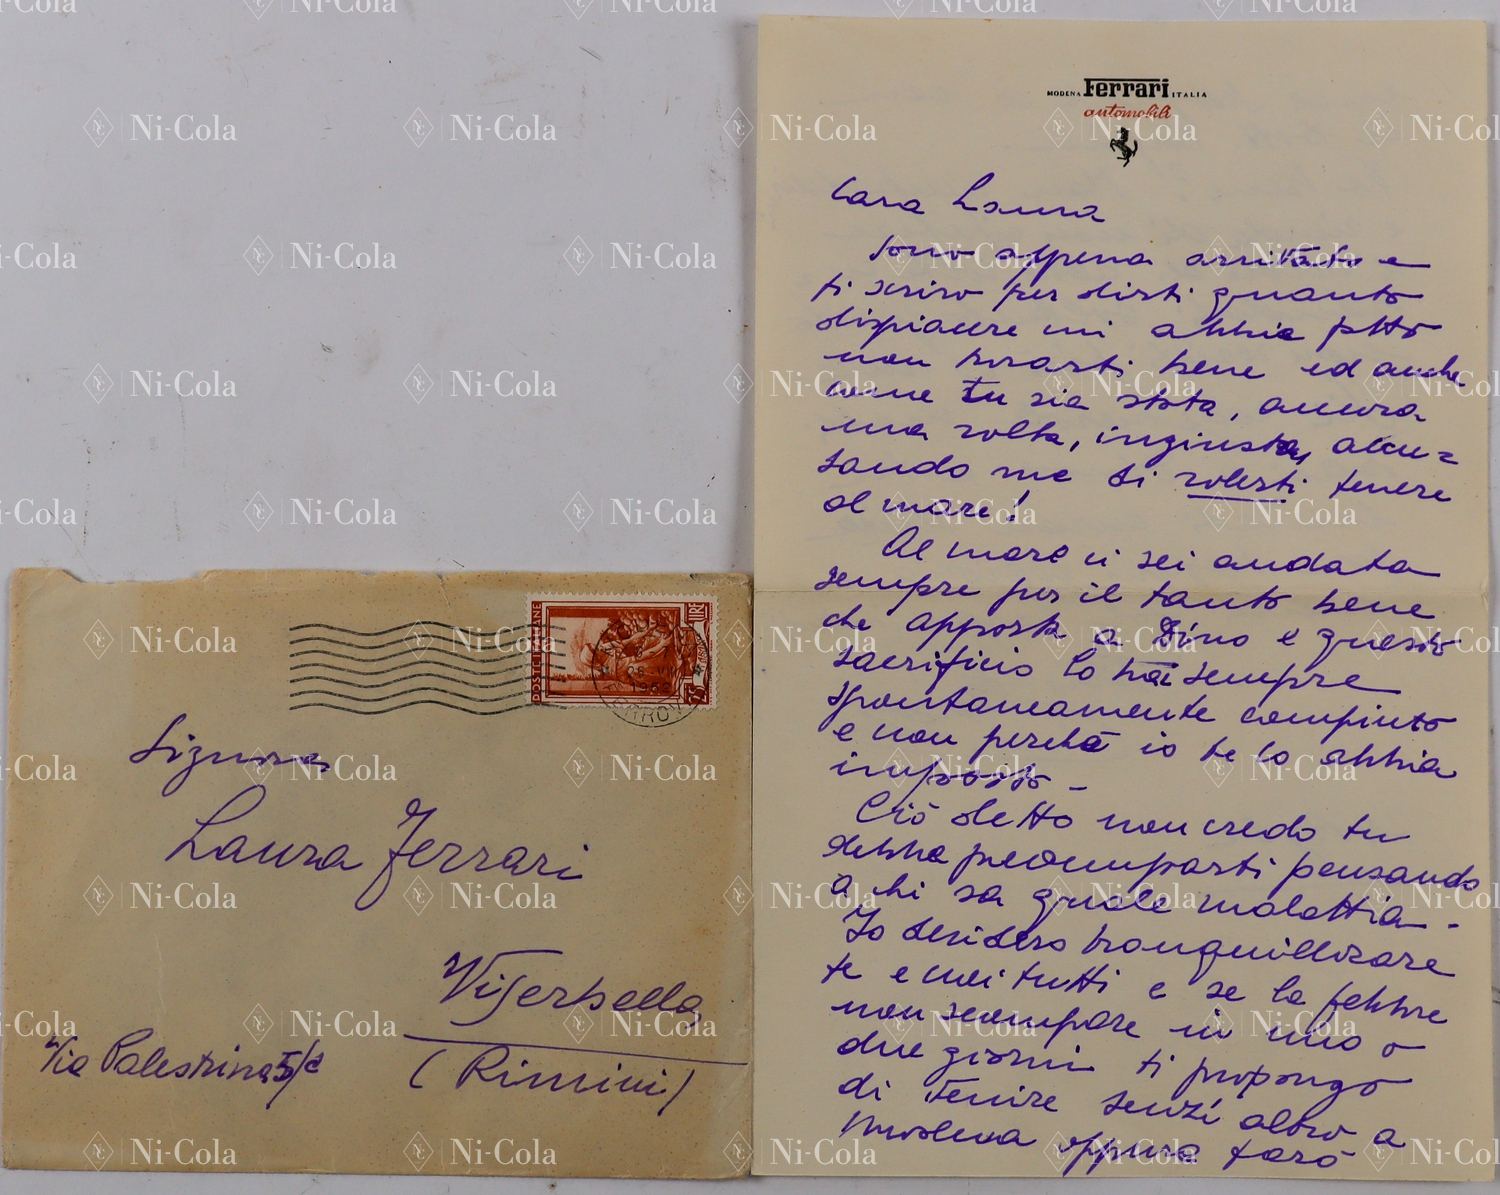 MODENA Ferrari ITALIA
automobili
Cara Laura
Sono appena arrivato e
ti scrivo per dirti quanto
dispiacere mi abbia fatto
non trovarti bene ed anche
come tu sia stata, ancora
una volta, ingiusta, accu=
sando me di volerti tenere
al mare!
Al mare ci sei andata
sempre per il tanto bene
che apporta a Dino e questo
sacrificio lo hai sempre
spontaneamente compiuto
e non perchè io te lo abbia
imposto -
Ciò detto non credo tu
debba preoccuparti pensando
a chi sa quale malattia -
Io desidero tranquillizzare
te e noi tutti e se la febbre
non scompare in uno o
due giorni ti propongo
di venire senz'altro a
Modena oppure farò
POSTE ITALIANE
LIRE
Signora
Laura Ferrari
Viserbella
(Rimini)
Via Palestrina 5/c
Ni-Cola